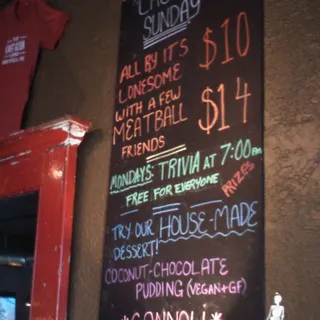 SUNDAY
ALL BY IT'S
LONESOME $10
WITH A FEW
MEATBALL $14
FRIENDS
MONDAYS: TRIVIA AT 7:00PM
FREE FOR EVERYONE
PRIZES
TRY OUR HOUSE-MADE
DESSERT!
COCONUT-CHOCOLATE
PUDDING (VEGAN+GF)
*CANNOLI*